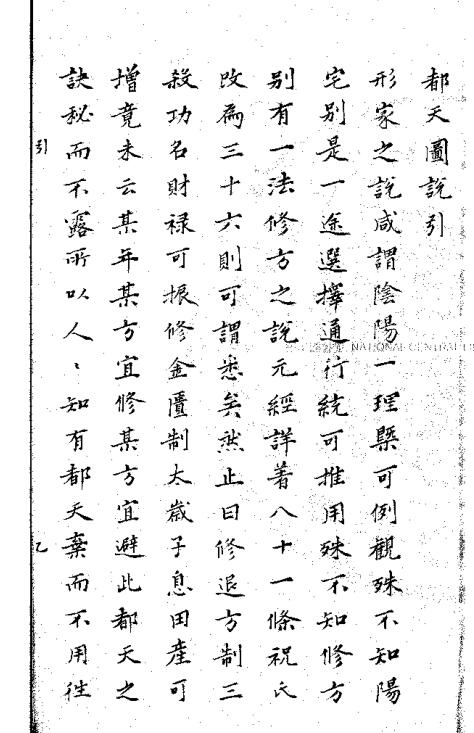 都天圖說引
形家之說咸謂陰陽一理槩可例觀殊不知陽
宅别是一途選擇通行統可推用殊不知修方
别有一法修方之說元經詳著八十一條祝氏
改為三十六則可謂悉矣然止曰修退方制三
殺功名財禄可振修金匱制太歲子息田產可
增竟未云某年某方宜修某方宜避此都天之
訣秘而不露所以人〻知有都天棄而不用徃
引
乙
NATIONAL CENTRAL LI